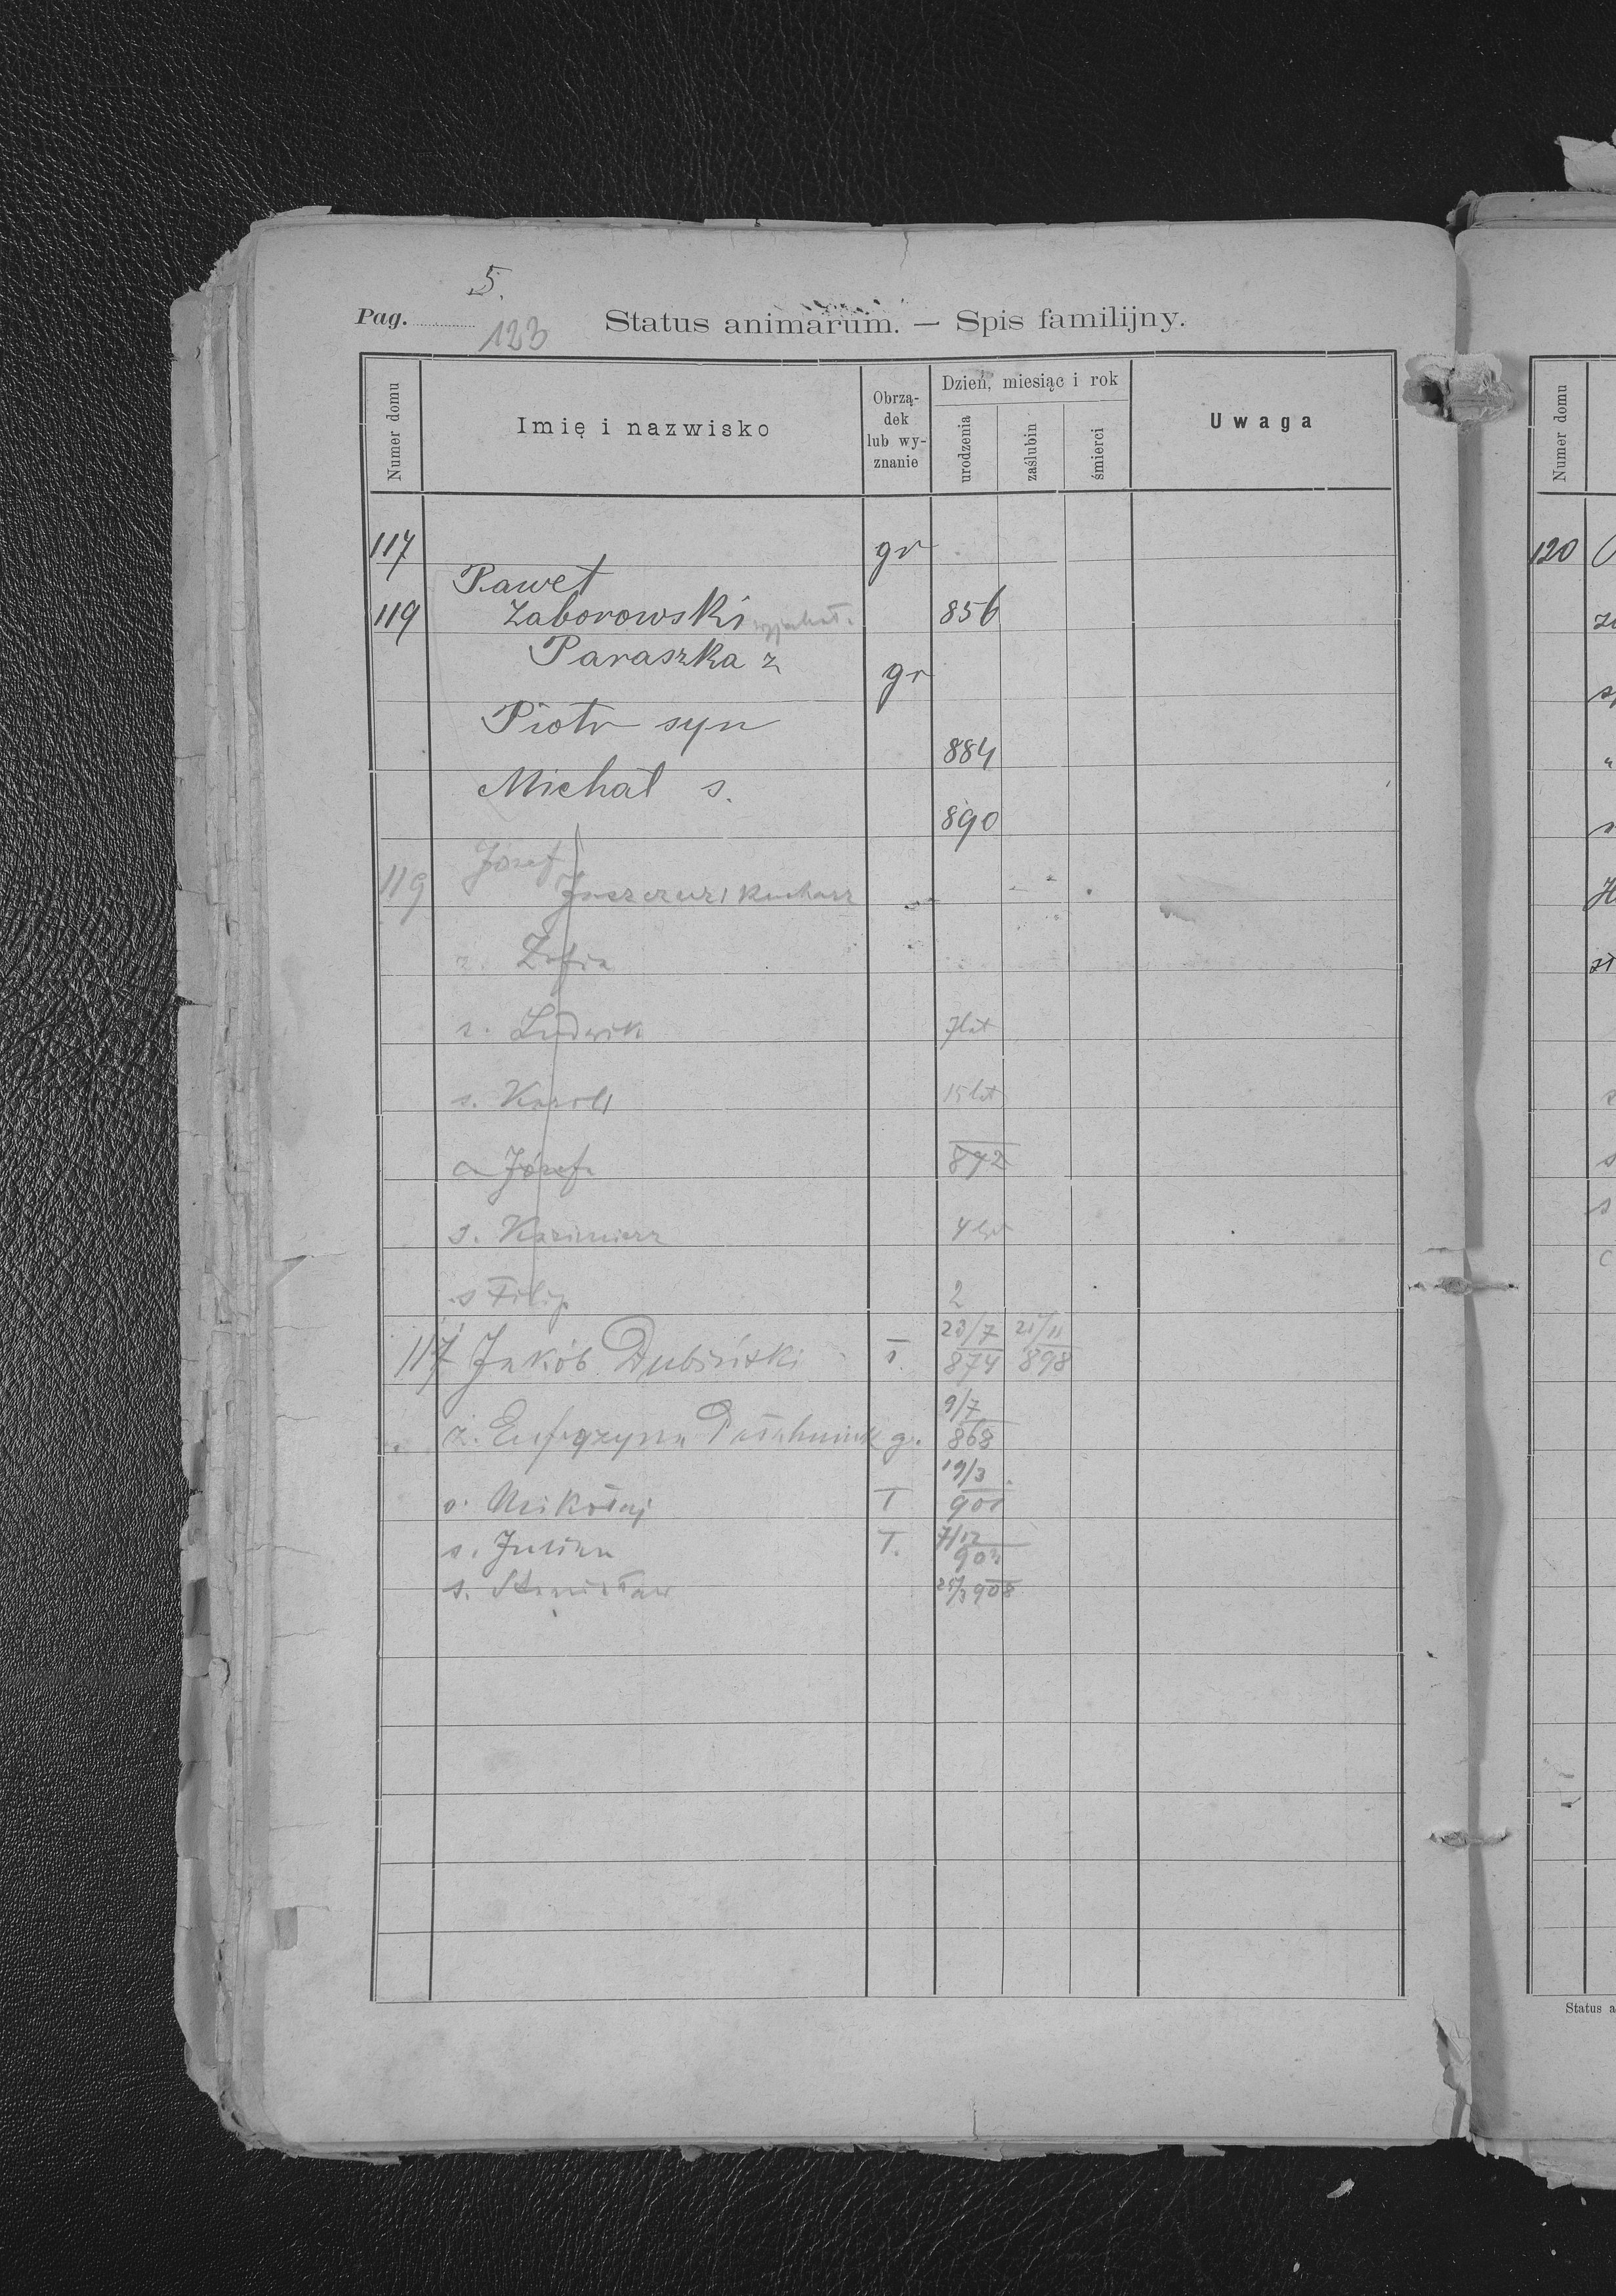 5.
Pag. 123
Status animarum. — Spis familijny.
Numer domu
Imię i nazwisko
Obrządek lub wyznanie
Dzień, miesiąc i rok
urodzenia
zaślubin
śmierci
Uwaga
117 gr
Paweł
119 Zaborowski wyjechał. 856
Paraszka ż gr
Piotr syn
884
Michał s.
890
Józef
119 kucharz
ż. Zofia
s. Ludwik 7 lat
s. Karol 15 lat
c Józefa 892
s. Kazimierz 4 lat
s Filip 2
23/7 21/11
117 Jakób Dubiński ł. 874 898
9/7
ż. Eufrozyna gr. 868
19/3
s. Mikołaj ł 901
s. Julian ł. 7/12
s. Stanisław 908
120
Numer domu
Status a